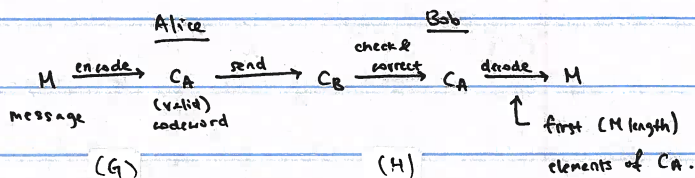 Alice Bob
encode send check & correct decode
M → C_A → C_B → C_A → M
message (valid) codeword first (M length) elements of C_A.
(G) (H)